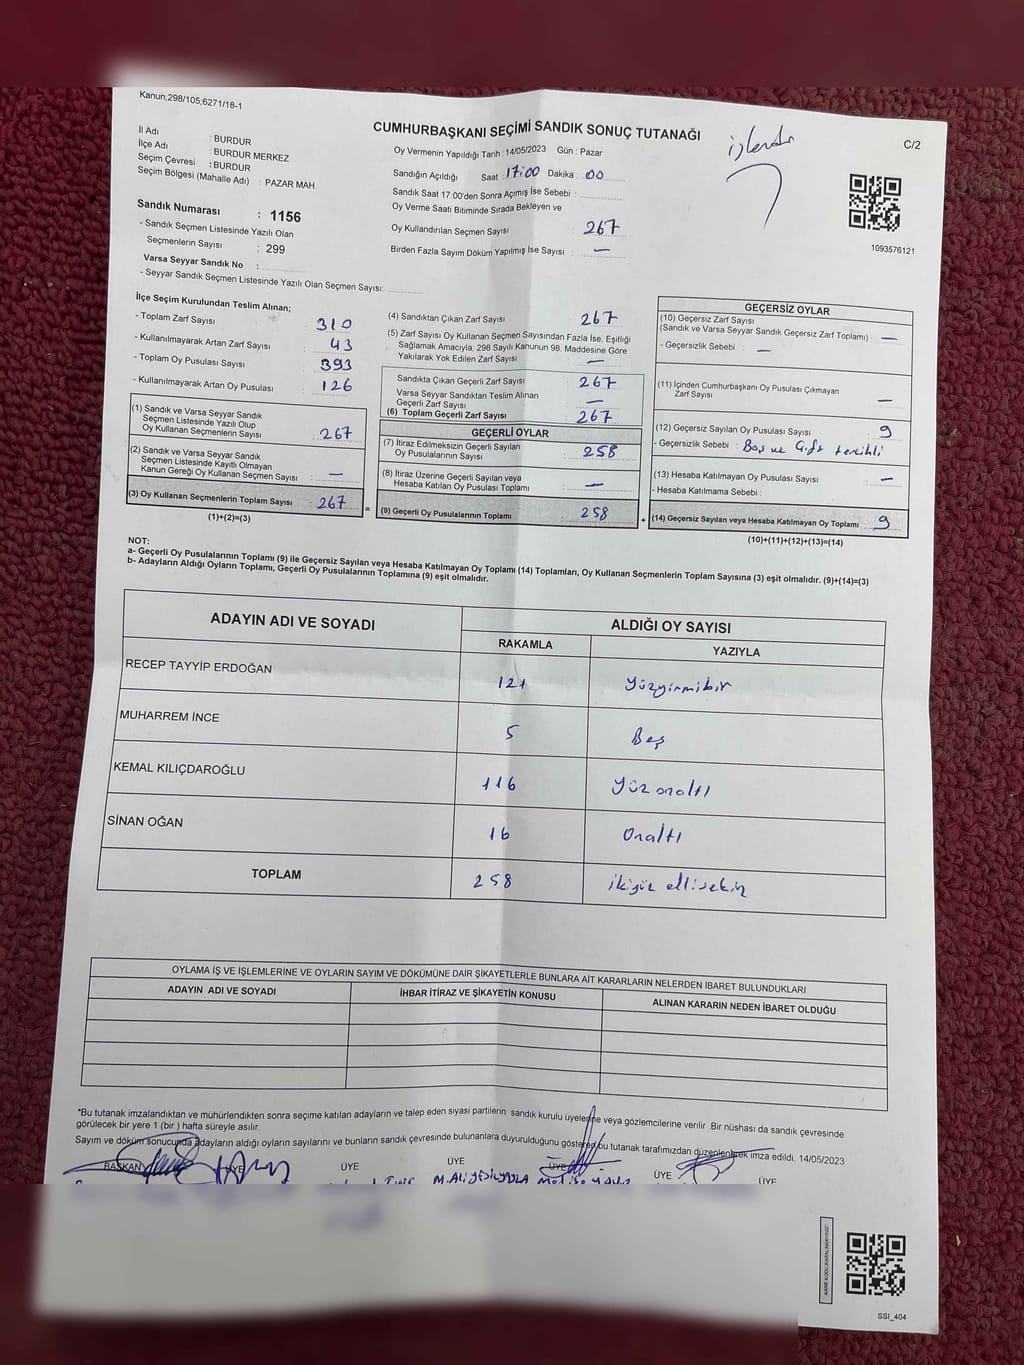 Kanun;298/105,6271/18-1
CUMHURBAŞKANI SEÇİMİ SANDIK SONUÇ TUTANAĞI
işlendi
C/2
İl Adı : BURDUR
İlçe Adı : BURDUR MERKEZ
Seçim Çevresi : BURDUR
Seçim Bölgesi (Mahalle Adı) : PAZAR MAH
Sandık Numarası : 1156
- Sandık Seçmen Listesinde Yazılı Olan
Seçmenlerin Sayısı : 299
Varsa Seyyar Sandık No :
- Seyyar Sandık Seçmen Listesinde Yazılı Olan Seçmen Sayısı:
Oy Vermenin Yapıldığı Tarih : 14/05/2023 Gün : Pazar
Sandığın Açıldığı Saat : 17:00 Dakika : 00
Sandık Saat 17:00'den Sonra Açımış İse Sebebi :
Oy Verme Saati Bitiminde Sırada Bekleyen ve
Oy Kullandırılan Seçmen Sayısı : 267
Birden Fazla Sayım Döküm Yapılmış İse Sayısı : —
1093576121
İlçe Seçim Kurulundan Teslim Alınan;
- Toplam Zarf Sayısı 310
- Kullanılmayarak Artan Zarf Sayısı : 43
- Toplam Oy Pusulası Sayısı : 393
- Kullanılmayarak Artan Oy Pusulası : 126
(1) Sandık ve Varsa Seyyar Sandık
Seçmen Listesinde Yazılı Olup
Oy Kullanan Seçmenlerin Sayısı : 267
(2) Sandık ve Varsa Seyyar Sandık
Seçmen Listesinde Kayıtlı Olmayan
Kanun Gereği Oy Kullanan Seçmen Sayısı : —
(3) Oy Kullanan Seçmenlerin Toplam Sayısı 267
(1)+(2)=(3)
=
(4) Sandıktan Çıkan Zarf Sayısı : 267
(5) Zarf Sayısı Oy Kullanan Seçmen Sayısından Fazla İse, Eşitliği
Sağlamak Amacıyla; 298 Sayılı Kanunun 98. Maddesine Göre
Yakılarak Yok Edilen Zarf Sayısı : —
Sandıkta Çıkan Geçerli Zarf Sayısı : 267
Varsa Seyyar Sandıktan Teslim Alınan
Geçerli Zarf Sayısı : —
(6) Toplam Geçerli Zarf Sayısı 267
GEÇERLİ OYLAR
(7) İtiraz Edilmeksizin Geçerli Sayılan
Oy Pusulalarının Sayısı : 258
(8) İtiraz Üzerine Geçerli Sayılan veya
Hesaba Katılan Oy Pusulası Toplamı : —
(9) Geçerli Oy Pusulalarının Toplamı : 258
+
GEÇERSİZ OYLAR
(10) Geçersiz Zarf Sayısı
(Sandık ve Varsa Seyyar Sandık Geçersiz Zarf Toplamı) : —
- Geçersizlik Sebebi : —
(11) İçinden Cumhurbaşkanı Oy Pusulası Çıkmayan
Zarf Sayısı : —
(12) Geçersiz Sayılan Oy Pusulası Sayısı : 9
- Geçersizlik Sebebi : Boş ve Çift tercihli
(13) Hesaba Katılmayan Oy Pusulası Sayısı : —
- Hesaba Katılmama Sebebi :
(14) Geçersiz Sayılan veya Hesaba Katılmayan Oy Toplamı : 9
(10)+(11)+(12)+(13)=(14)
NOT:
a- Geçerli Oy Pusulalarının Toplamı (9) ile Geçersiz Sayılan veya Hesaba Katılmayan Oy Toplamı (14) Toplamları, Oy Kullanan Seçmenlerin Toplam Sayısına (3) eşit olmalıdır. (9)+(14)=(3)
b- Adayların Aldığı Oyların Toplamı, Geçerli Oy Pusulalarının Toplamına (9) eşit olmalıdır.
ADAYIN ADI VE SOYADI ALDIĞI OY SAYISI
RAKAMLA YAZIYLA
RECEP TAYYİP ERDOĞAN 121 Yüzyirmibir
MUHARREM İNCE 5 Beş
KEMAL KILIÇDAROĞLU 116 Yüz onaltı
SİNAN OĞAN 16 Onaltı
TOPLAM 258 ikiyüz ellisekiz
OYLAMA İŞ VE İŞLEMLERİNE VE OYLARIN SAYIM VE DÖKÜMÜNE DAİR ŞİKAYETLERLE BUNLARA AİT KARARLARIN NELERDEN İBARET BULUNDUKLARI
ADAYIN ADI VE SOYADI İHBAR İTİRAZ VE ŞİKAYETİN KONUSU ALINAN KARARIN NEDEN İBARET OLDUĞU
*Bu tutanak imzalandıktan ve mühürlendikten sonra seçime katılan adayların ve talep eden siyasi partilerin sandık kurulu üyelerine veya gözlemcilerine verilir .Bir nüshası da sandık çevresinde
görülecek bir yere 1 (bir ) hafta süreyle asılır.
Sayım ve döküm sonucunda adayların aldığı oyların sayılarını ve bunların sandık çevresinde bulunanlara duyurulduğunu gösteren bu tutanak tarafımızdan düzenlenerek imza edildi. 14/05/2023
BAŞKAN ÜYE ÜYE ÜYE ÜYE ÜYE ÜYE
SSI_404